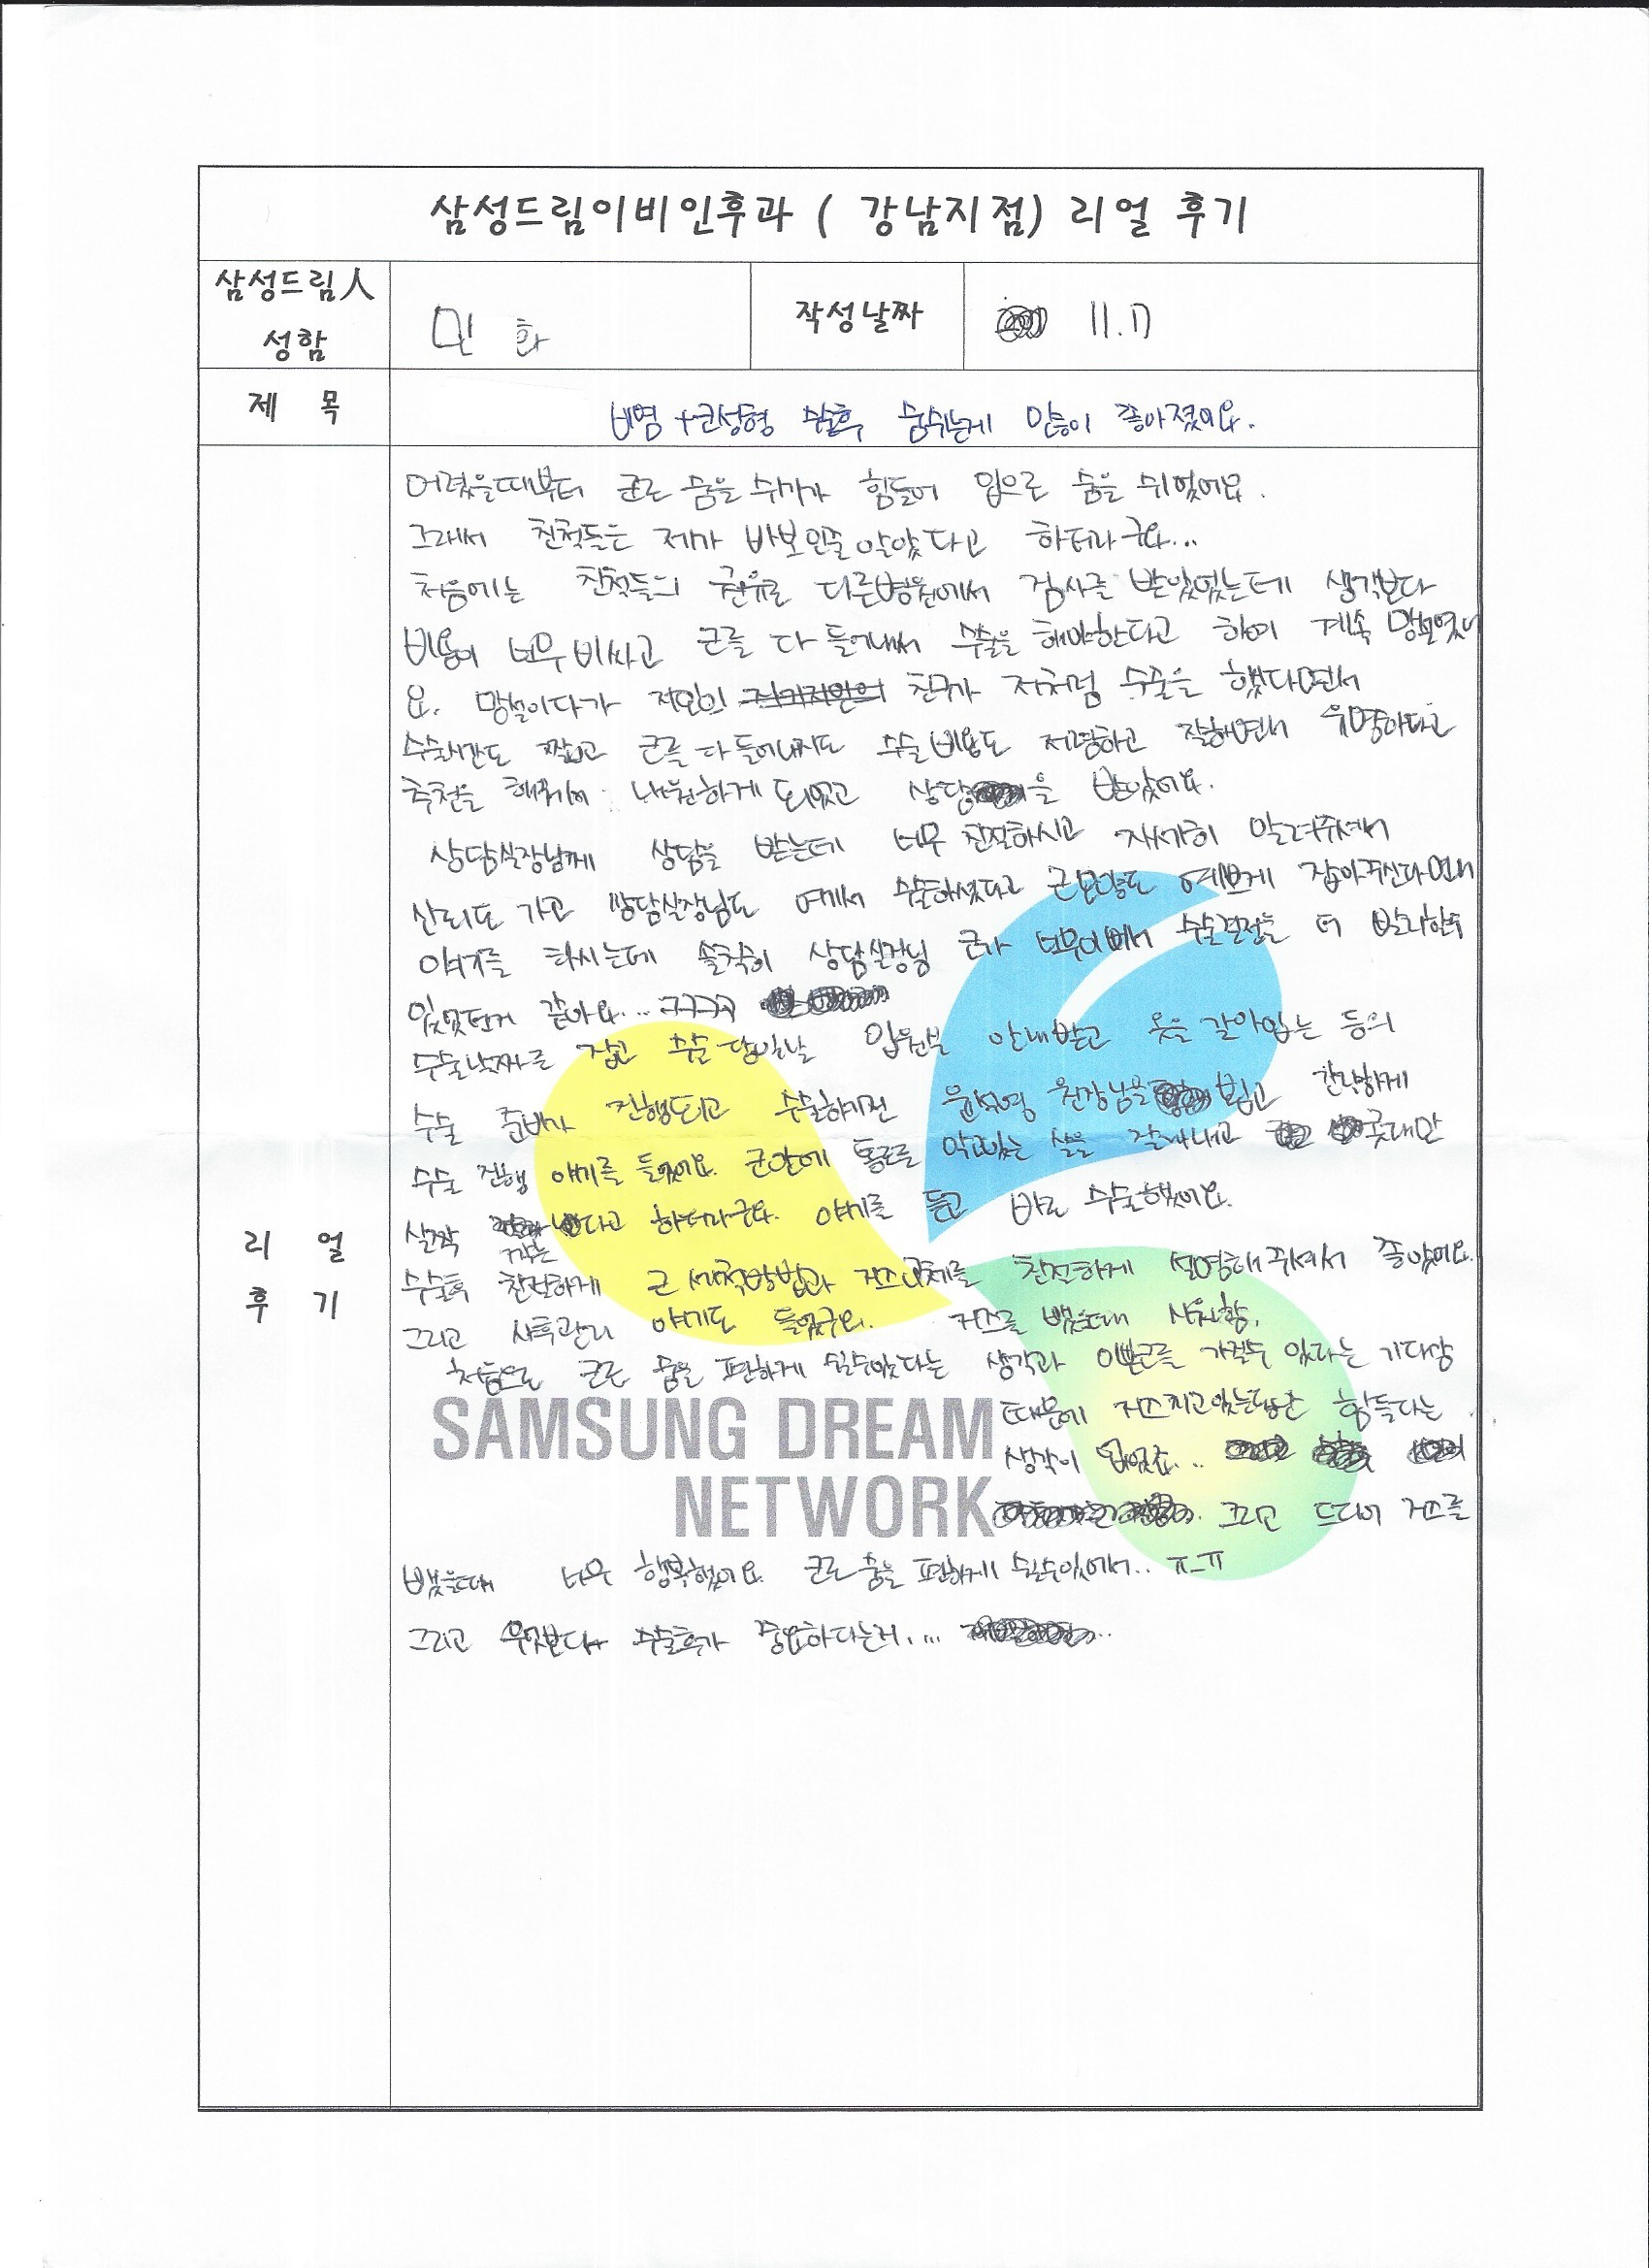 삼성드림이비인후과 ( 강남지점) 리얼 후기
삼성드림人
성함
민 화
작성날짜
11.17
제 목
비염+코성형 수술후 숨쉬는게 많이 좋아졌어요.
리 얼
후 기
어렸을때부터 코로 숨을 쉬기가 힘들어 입으로 숨을 쉬었어요.
그래서 친척들은 제가 바보인줄 알았다고 하더라구요...
처음에는 친척들의 권유로 다른병원에서 검사를 받았었는데 생각보다
비용이 너무 비싸고 코를 다 들어내서 수술을 해야한다고 하여 계속 망설였어
요. 망설이다가 지인의 친구가 저처럼 수술을 했다면서
수술시간도 짧고 코를 다 들어내지도 수술비용도 저렴하고 잘하면서 유명하다고
추천을 해줘서 내원하게 되었고 상담을 받았어요.
상담실장님께 상담을 받는데 너무 친절하시고 자세히 알려주셔서
신뢰도 가고 상담실장님도 여기서 수술하셨다고 코모양도 예쁘게 잡아주신다면서
얘기를 하시는데 솔직히 상담실장님 코가 너무이뻐서 수술결정을 더 빨리할수
있었던거 같아요... ㅋㅋㅋㅋ
수술날짜를 잡고 수술 당일날 입원실 안내받고 옷을 갈아입는 등의
수술 준비가 진행되고 수술하기전 윤석영 원장님을 뵙고 간략하게
수술 진행 얘기를 들었어요. 코안에 통로를 막고있는 살을 잘라내고 콧대만
살짝 다고 하더라구요. 얘기를 듣고 바로 수술했어요.
수술후 친절하게 코 세척방법과 거즈교체를 친절하게 설명해주셔서 좋았어요.
그리고 사후관리 얘기도 들었구요. 거즈를 뺐을때 시원함.
처음으로 코로 숨을 편하게 쉴수있다는 생각과 이쁜코를 가질수 있다는 기다람
때문에 거즈끼고있는동안 힘들다는
생각이 없었죠..
그리고 드디어 거즈를
SAMSUNG DREAM
NETWORK
뺐을때 너무 행복했어요. 코로 숨을 편하게 쉴수있어서.. ㅠ_ㅠ
그리고 무엇보다 수술후가 중요하다는거....